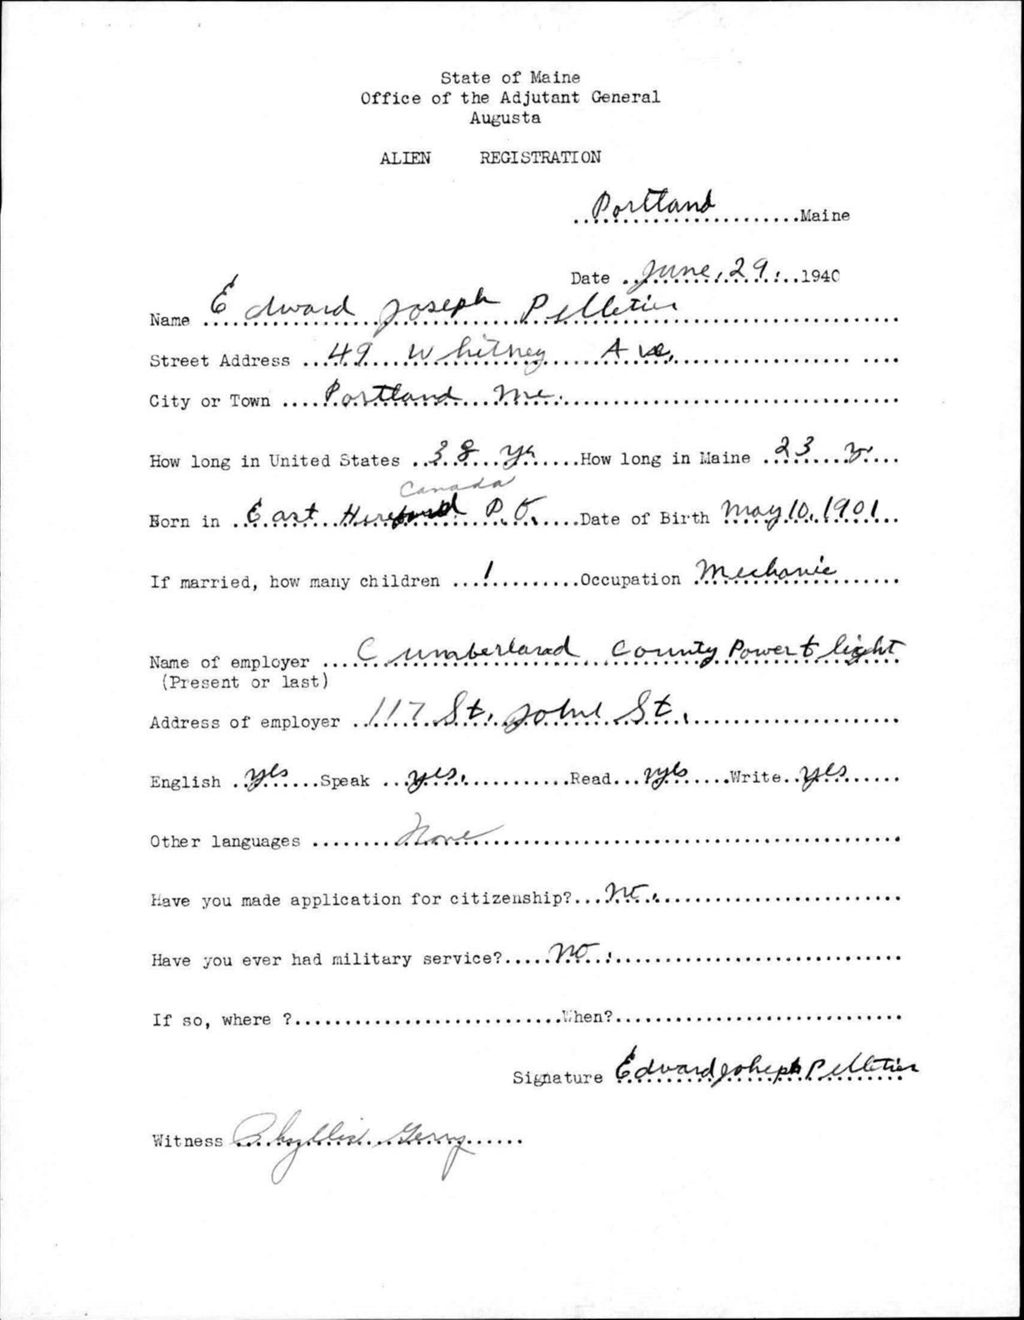 State of Maine
Office of the Adjutant General
Augusta
ALIEN REGISTRATION
Portland Maine
Date June 29, 1940
Name Edward Joseph Pelletier
Street Address 49 Whitney Ave,
City or Town Portland Me.
How long in United States 38 yr How long in Maine 23 yr
Canada
Born in East Hereford P.Q. Date of Birth May 10, 1901
If married, how many children 1 Occupation Mechanic
Name of employer Cumberland County Power & light
(Present or last)
Address of employer 117 St. John St.
English yes Speak yes. Read yes Write yes
Other languages None
Have you made application for citizenship? no.
Have you ever had military service? no.
If so, where ? When?
Signature Edward Joseph Pelletier
Witness Phyllis Gerry